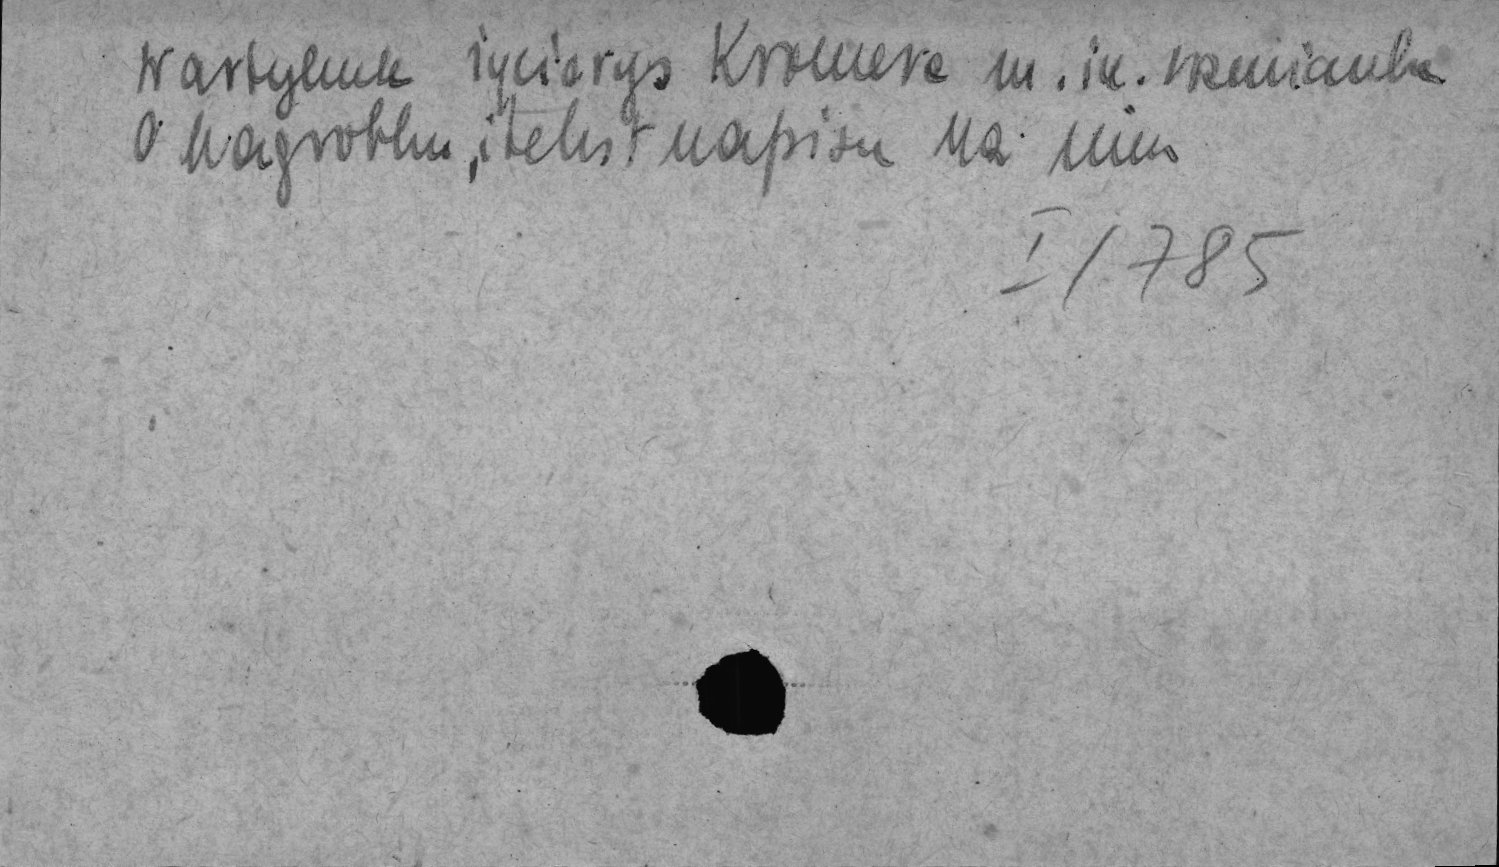 W artykule życiorys Kromera m.in. wzmianka
O nagrobku, i tekst napisu na nim
I/785